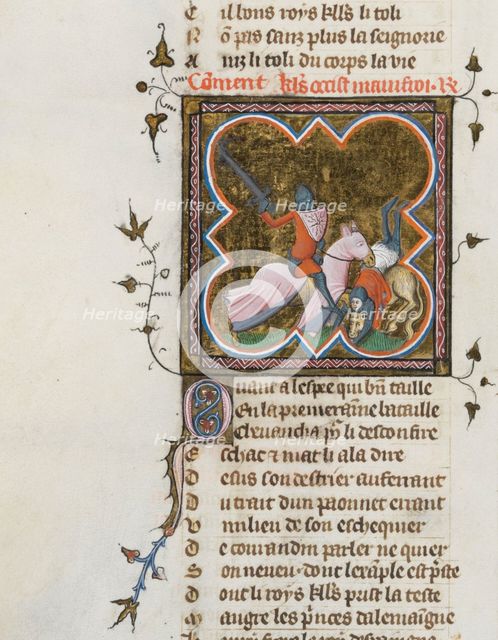 C il lons roys kl's li toli
N õ pas sanz plus la seignorie
A inz li toli du corps la vie
Cõment kl's occist mainfroi
Heritage
Heritage
Heritage
Heritage
Heritage
Q uant a lespee qui bñ taille
En la premeraine bataille
Cheuaucha li desconfire
E schac et mat li ala dire
D esus son destrier auferrant
D u trait dun paonnet errant
milieu de son eschequier
D e courandin parler ne quier
S on neueu dont lexãple est
D ont li roys kl's prist la teste
M augre les dalemaigne